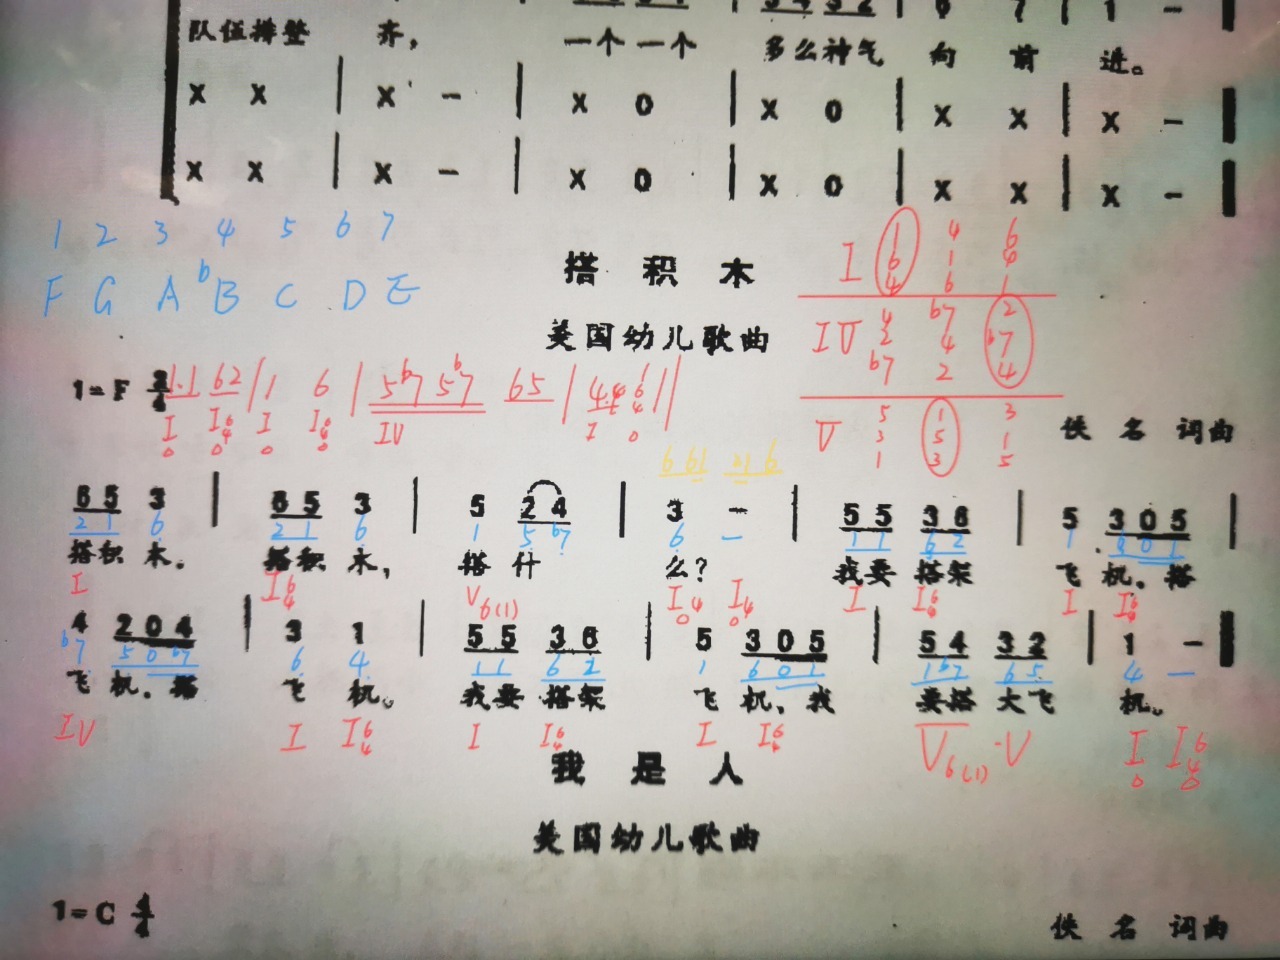 队伍排整 齐， 一个 一个 多么神气 向 前 进。
X X | X - | X 0 | X 0 | X X | X -
X X | X - | X 0 | X 0 | X X | X -
1 2 3 4 5 6 7
F G A bB C D E
搭 积 木
美国幼儿歌曲
I 1 4 6
6 1 4
4 6 1
IV 4 b7 2
2 4 b7
b7 2 4
V 5 1 3
3 5 1
1 3 5
1=F 2/4 1.1 62 | 1 6 | 5b7 5b7 65 | 4.4
I I64 I I64 IV I
佚 名 词曲
6 61 21 6
65 3 | 65 3 | 5 24 | 3 - | 55 36 | 5 305 |
21 6 21 6 1 5b7 6 - 11 62 1 601
搭积 木。 搭积 木， 搭 什 么？ 我要 搭架 飞 机。搭
I I64 V6(1) I64 I64 I I64 I I64
4 204 | 3 1 | 55 36 | 5 305 | 54 32 | 1 -
b7 50b7 6 4 11 62 1 601 1b7 65 4 -
飞 机。搭 飞 机。 我要 搭架 飞 机，我 要搭 大飞 机。
IV I I64 I I64 I I64 V6(1)·V I I64
我 是 人
美国幼儿歌曲
1=C 4/4
佚 名 词曲